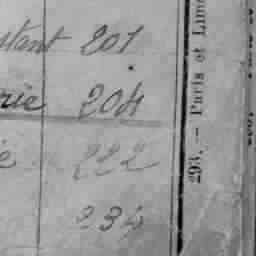 stant 201
rie 204
e 222
234
293. — Paris et Lim